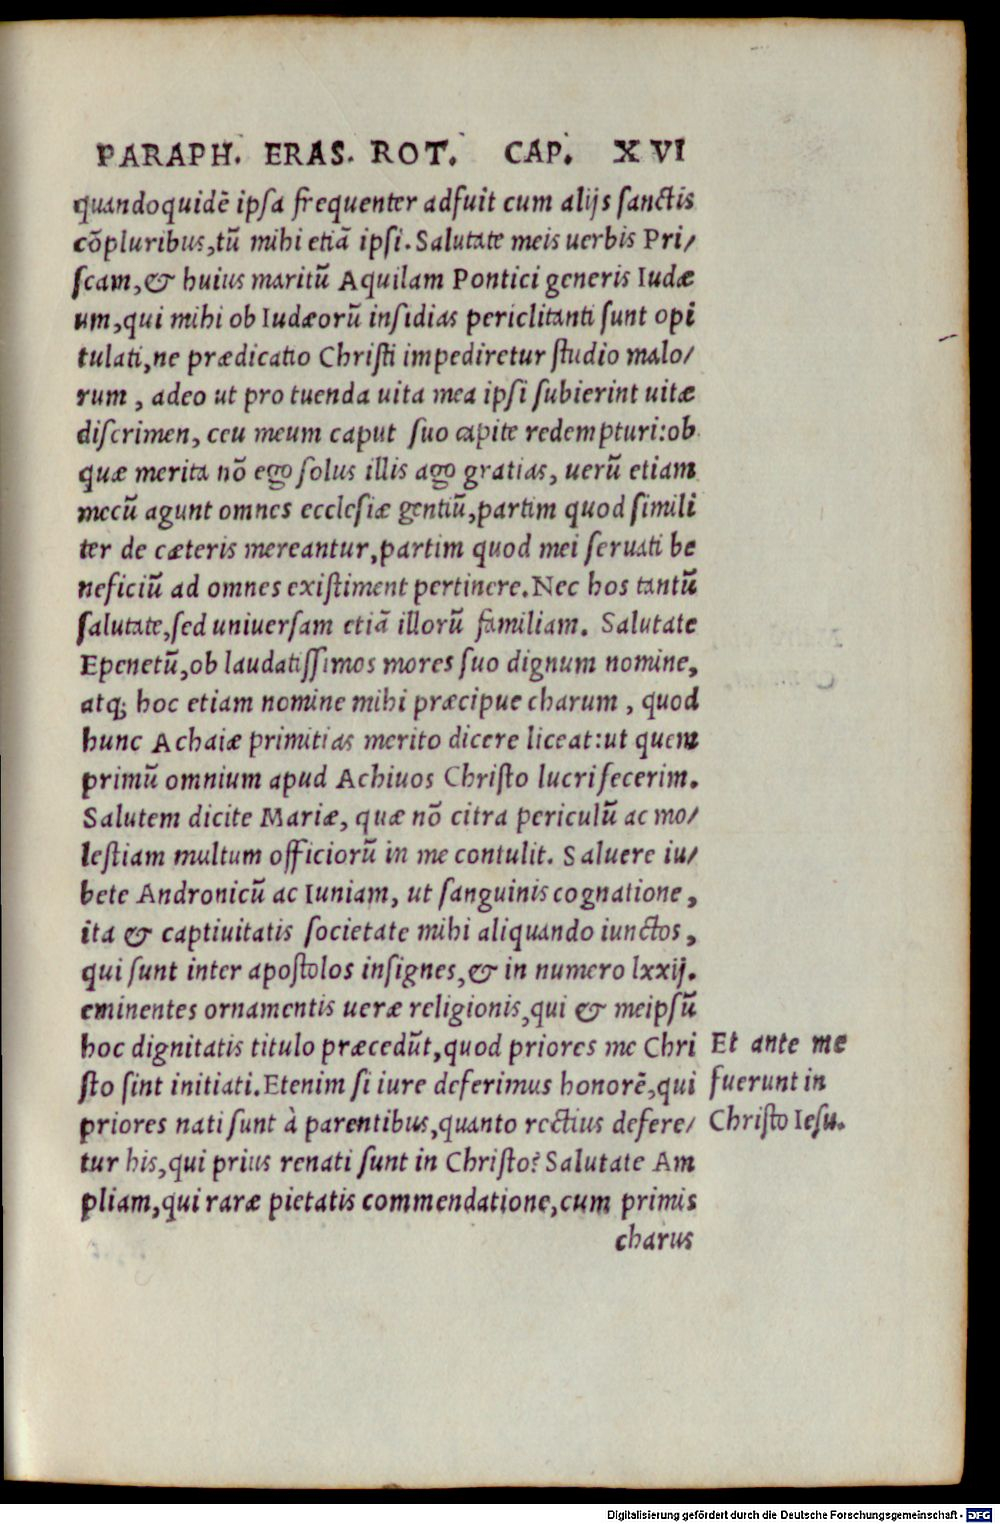 PARAPH. ERAS. ROT. CAP. XVI
quandoquidē ipsa frequenter adfuit cum alijs sanctis
cōpluribus, tū mihi etiā ipsi. Salutate meis uerbis Pri/
scam, & huius maritū Aquilam Pontici generis Iudæ
um, qui mihi ob Iudæorū insidias periclitanti sunt opi
tulati, ne prædicatio Christi impediretur studio malo/
rum, adeo ut pro tuenda uita mea ipsi subierint uitæ
discrimen, ceu meum caput suo capite redempturi: ob
quæ merita nō ego solus illis ago gratias, uerū etiam
mecū agunt omnes ecclesiæ gentiū, partim quod simili
ter de cæteris mereantur, partim quod mei seruati be
neficiū ad omnes existiment pertinere. Nec hos tantū
salutate, sed uniuersam etiā illorū familiam. Salutate
Epenetū, ob laudatissimos mores suo dignum nomine,
atq; hoc etiam nomine mihi præcipue charum, quod
hunc Achaiæ primitias merito dicere liceat: ut quem
primū omnium apud Achiuos Christo lucrifecerim.
Salutem dicite Mariæ, quæ nō citra periculū ac mo/
lestiam multum officiorū in me contulit. Saluere iu/
bete Andronicū ac Iuniam, ut sanguinis cognatione,
ita & captiuitatis societate mihi aliquando iunctos,
qui sunt inter apostolos insignes, & in numero lxxij.
eminentes ornamentis ueræ religionis, qui & meipsū
hoc dignitatis titulo præcedūt, quod priores me Chri
sto sint initiati. Etenim si iure deferimus honorē, qui
priores nati sunt à parentibus, quanto rectius defere/
tur his, qui prius renati sunt in Christo? Salutate Am
pliam, qui raræ pietatis commendatione, cum primis
charus
Et ante me
fuerunt in
Christo Iesu.
Digitalisierung gefördert durch die Deutsche Forschungsgemeinschaft - DFG